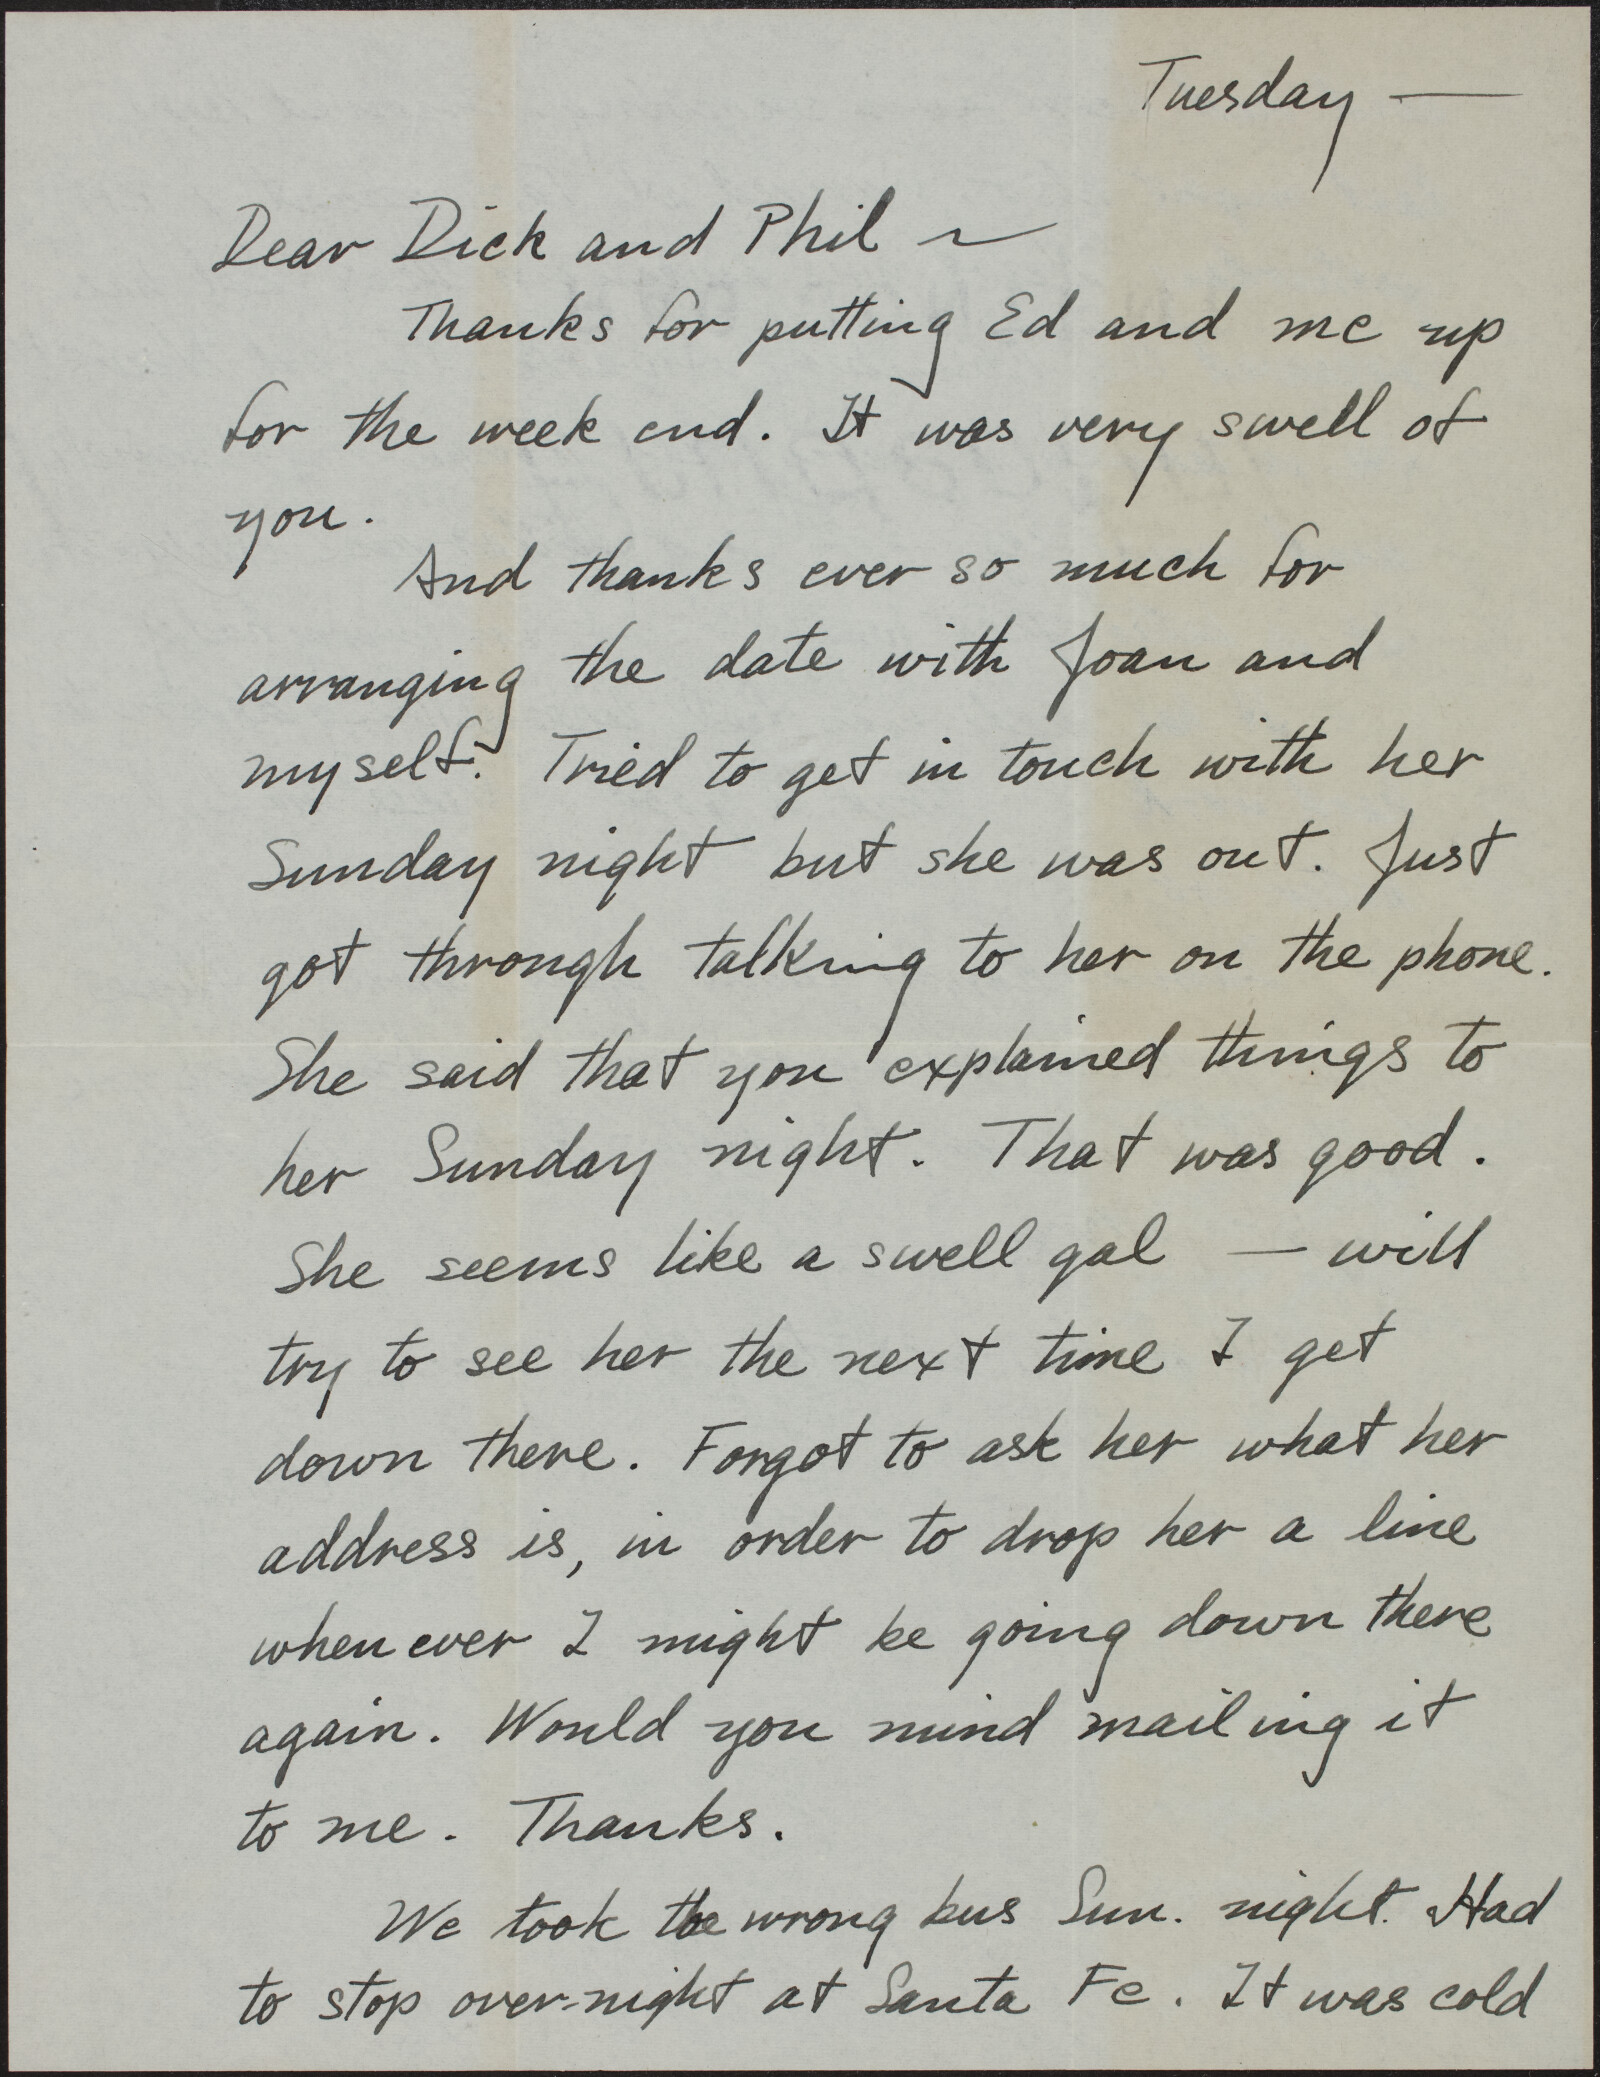 Tuesday —
Dear Dick and Phil ~
Thanks for putting Ed and me up
for the week end. It was very swell of
you.
And thanks ever so much for
arranging the date with Joan and
myself. Tried to get in touch with her
Sunday night but she was out. Just
got through talking to her on the phone.
She said that you explained things to
her Sunday night. That was good.
She seems like a swell gal — will
try to see her the next time I get
down there. Forgot to ask her what her
address is, in order to drop her a line
when ever I might be going down there
again. Would you mind mailing it
to me. Thanks.
We took the wrong bus Sun. night. Had
to stop over-night at Santa Fe. It was cold